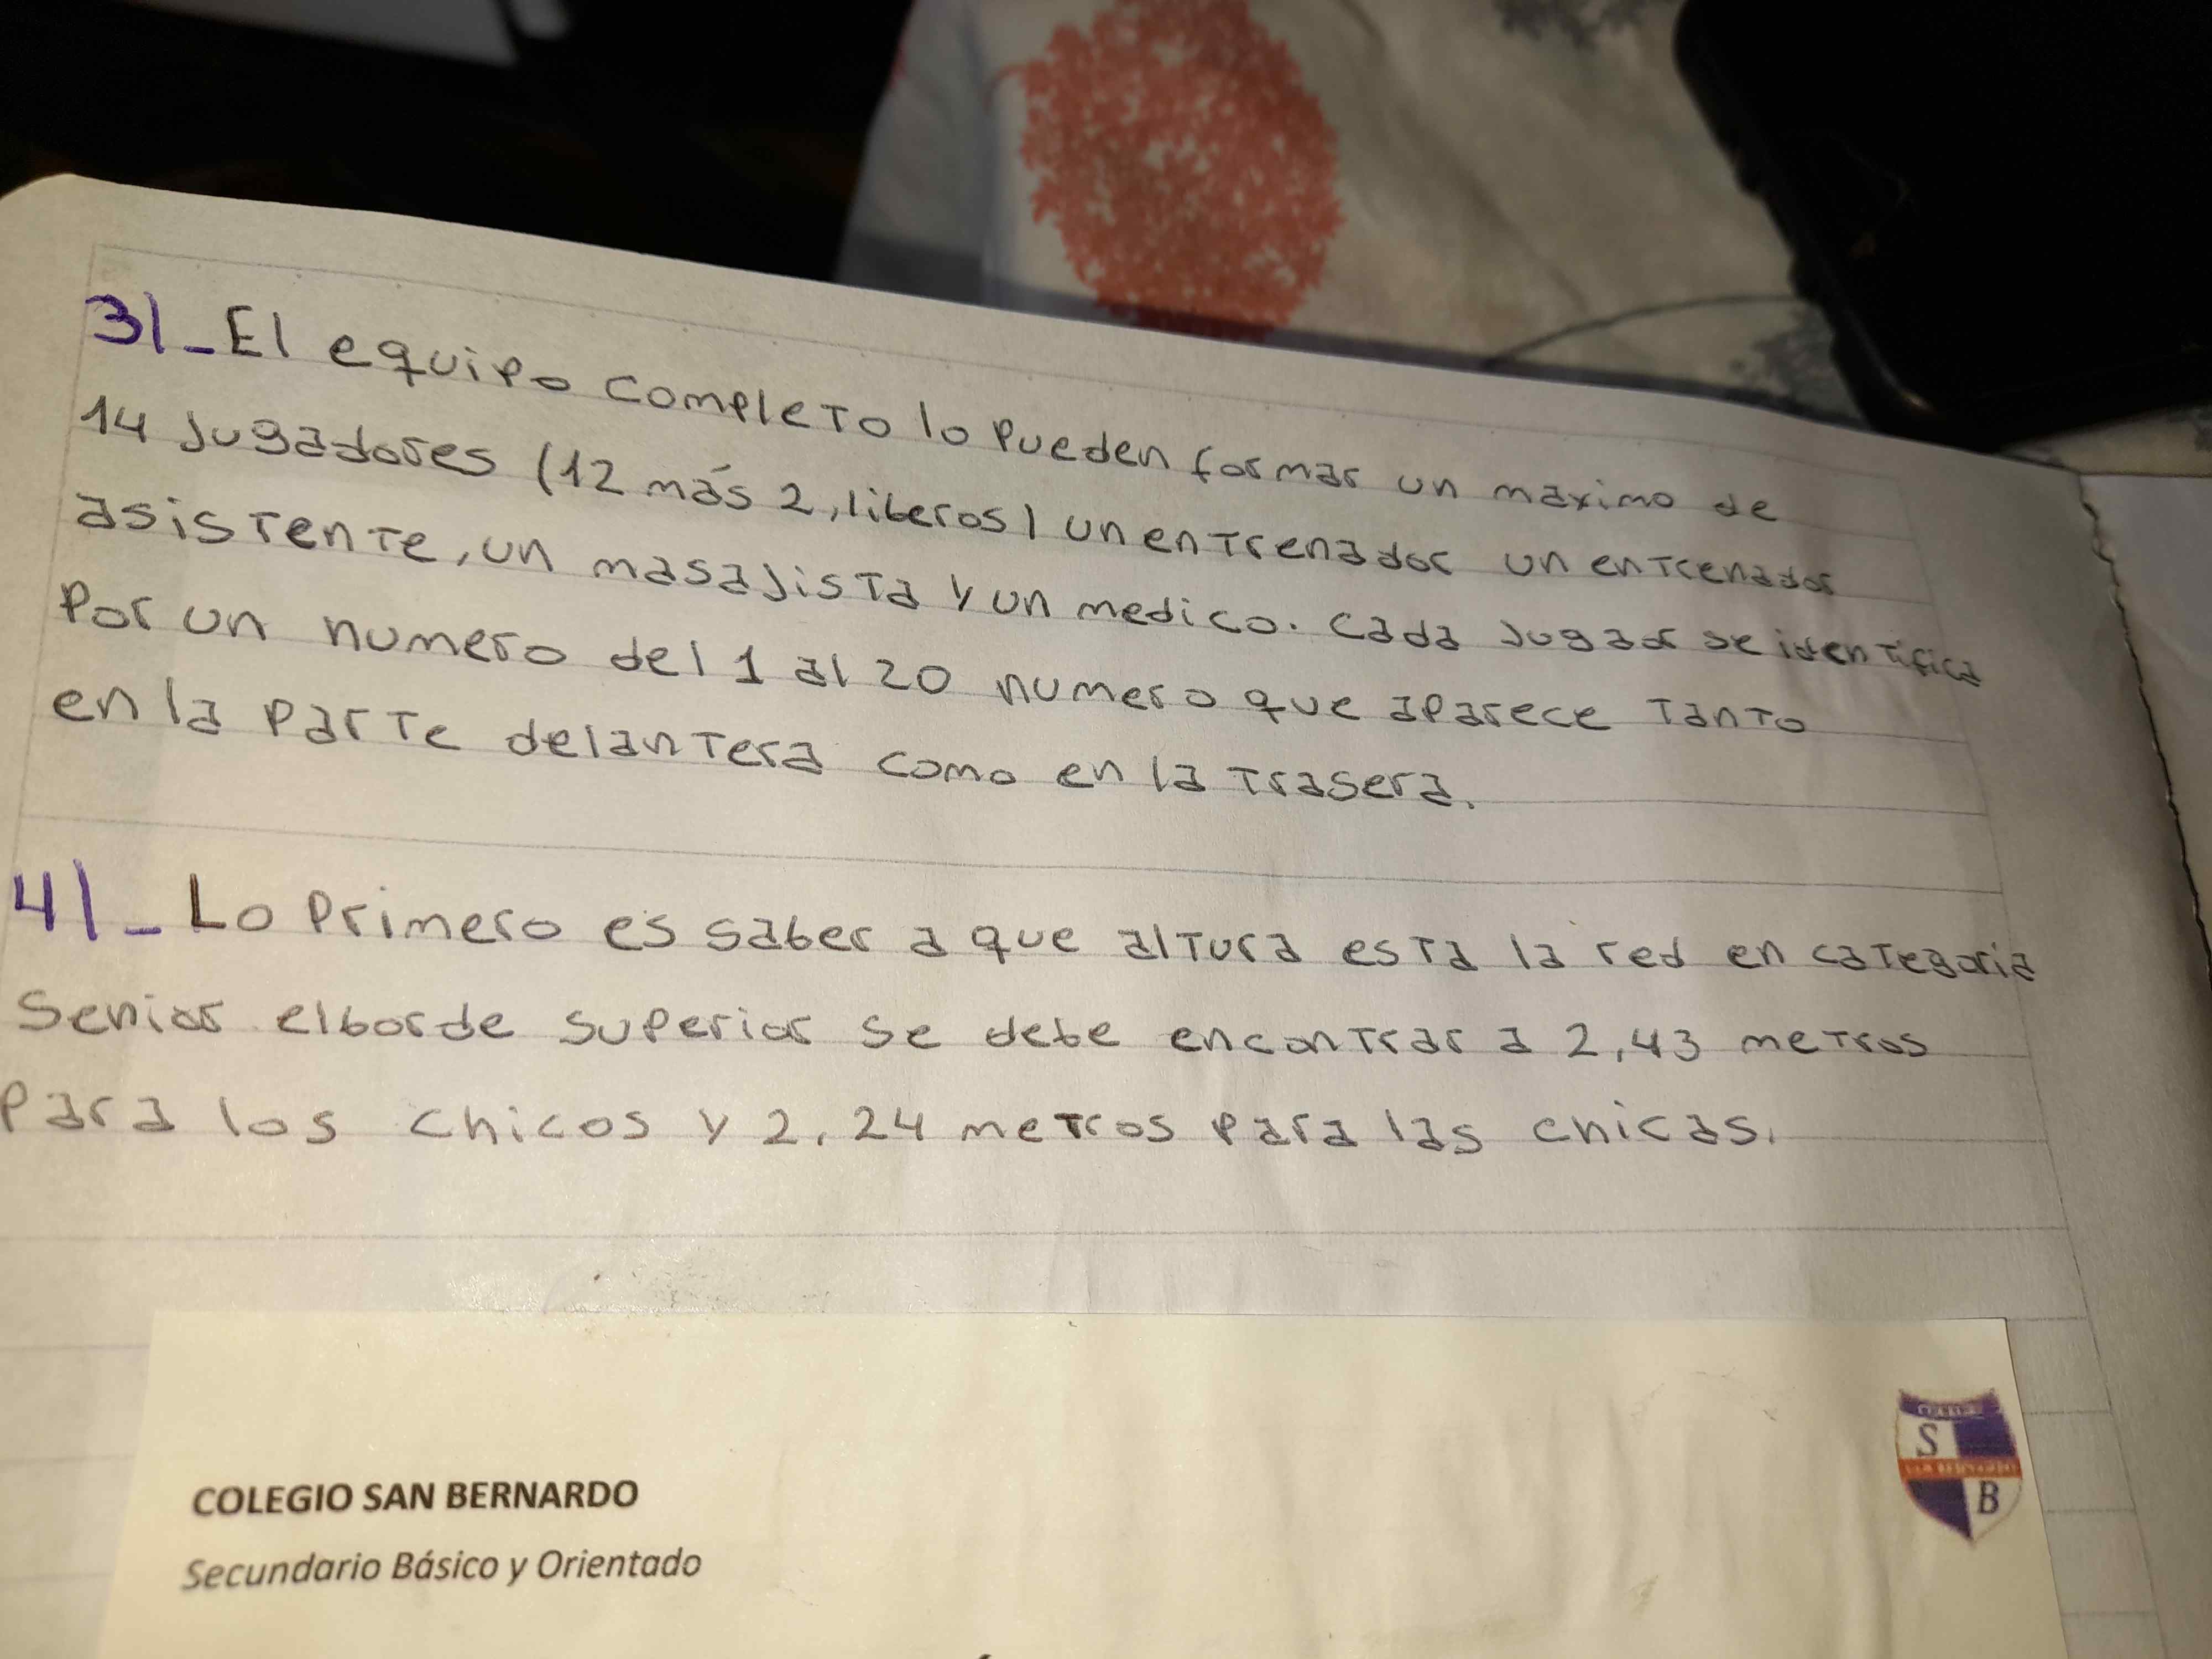 3)_El equipo completo lo pueden formar un maximo de
14 jugadores (12 más 2, liberos) un entrenador un entrenador
asistente, un masajista y un medico. cada jugar se identifica
por un numero del 1 al 20 numero que aparece tanto
en la parte delantera como en la trasera.
4)_Lo primero es saber a que altura esta la red en categoria
senior elborde superior se debe encontrar a 2,43 metros
para los chicos y 2,24 metros para las chicas.
COLEGIO SAN BERNARDO
Secundario Básico y Orientado
S
SAN BERNARDO
B